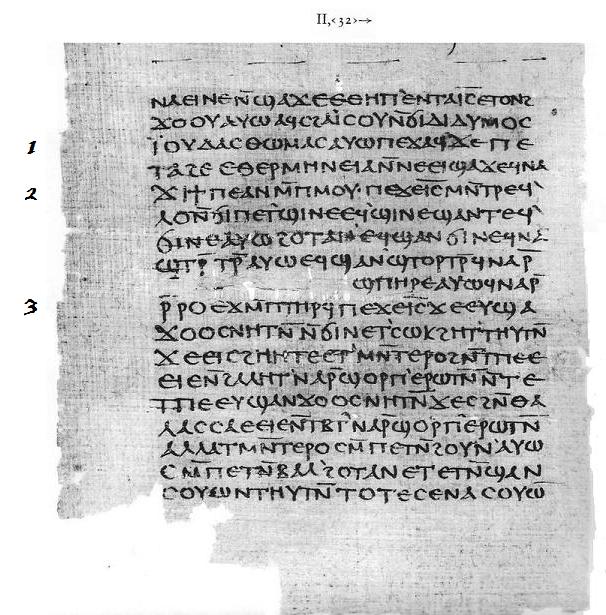 II,‹32›→
ⲛⲁⲉⲓⲛⲉⲛ̄ϣⲁϫⲉⲉⲑⲏⲡʼⲉⲛⲧⲁⲓ̅ⲥ̅ⲉⲧⲟⲛϩ
ϫⲟⲟⲩⲁⲩⲱⲁϥⲥϩⲁⲓⲥⲟⲩⲛ̄ϭⲓⲇⲓⲇⲩⲙⲟⲥ
1 ⲓ̈ⲟⲩⲇⲁⲥⲑⲱⲙⲁⲥⲁⲩⲱⲡⲉϫⲁϥʼϫⲉⲡⲉ
ⲧⲁϩⲉⲉⲑⲉⲣⲙⲏⲛⲉⲓⲁⲛ̄ⲛⲉⲉⲓϣⲁϫⲉϥⲛⲁ
2 ϫⲓϯⲡⲉⲁⲛⲙ̄ⲡⲙⲟⲩ·ⲡⲉϫⲉⲓ̅ⲥ̅ⲙⲛ̄ⲧⲣⲉϥʼ
ⲗⲟⲛ̄ϭⲓⲡⲉⲧϣⲓⲛⲉⲉϥϣⲓⲛⲉϣⲁⲛⲧⲉϥʼ
ϭⲓⲛⲉⲁⲩⲱϩⲟⲧⲁⲛʼⲉϥϣⲁⲛϭⲓⲛⲉϥⲛⲁ
ϣⲧⲣ̄ⲧⲣ̄ⲁⲩⲱⲉϥϣⲁⲛϣⲧⲟⲣⲧⲣ̄ϥⲛⲁⲣ̄
ϣⲡⲏⲣⲉⲁⲩⲱϥⲛⲁⲣ̄
3 ⲣ̄ⲣⲟⲉϫⲙ̄ⲡⲧⲏⲣϥⲡⲉϫⲉⲓ̅ⲥ̅ϫⲉⲉⲩϣⲁ
ϫⲟⲟⲥⲛⲏⲧⲛ̄ⲛ̄ϭⲓⲛⲉⲧʼⲥⲱⲕϩⲏⲧʼⲧⲏⲩⲧⲛ̄
ϫⲉⲉⲓⲥϩⲏⲏⲧⲉⲉⲧʼⲙⲛ̄ⲧⲉⲣⲟϩⲛ̄ⲧⲡⲉⲉ
ⲉⲓⲉⲛ̄ϩⲁⲗⲏⲧʼⲛⲁⲣ̄ϣⲟⲣⲡʼⲉⲣⲱⲧⲛ̄ⲛ̄ⲧⲉ
ⲧⲡⲉⲉⲩϣⲁⲛϫⲟⲟⲥⲛⲏⲧⲛ̄ϫⲉⲥϩⲛ̄ⲑⲁ
ⲗⲁⲥⲥⲁⲉⲉⲓⲉⲛ̄ⲧⲃ̄ⲧʼⲛⲁⲣ̄ϣⲟⲣⲡʼⲉⲣⲱⲧⲛ̄
ⲁⲗⲗⲁⲧⲙⲛ̄ⲧⲉⲣⲟⲥⲙ̄ⲡⲉⲧⲛ̄ϩⲟⲩⲛʼⲁⲩⲱ
ⲥⲙ̄ⲡⲉⲧⲛ̄ⲃⲁⲗʼϩⲟⲧⲁⲛⲉⲧⲉⲧⲛ̄ϣⲁⲛ
ⲥⲟⲩⲱⲛⲧⲏⲩⲧⲛ̄ⲧⲟⲧⲉⲥⲉⲛⲁⲥⲟⲩⲱ